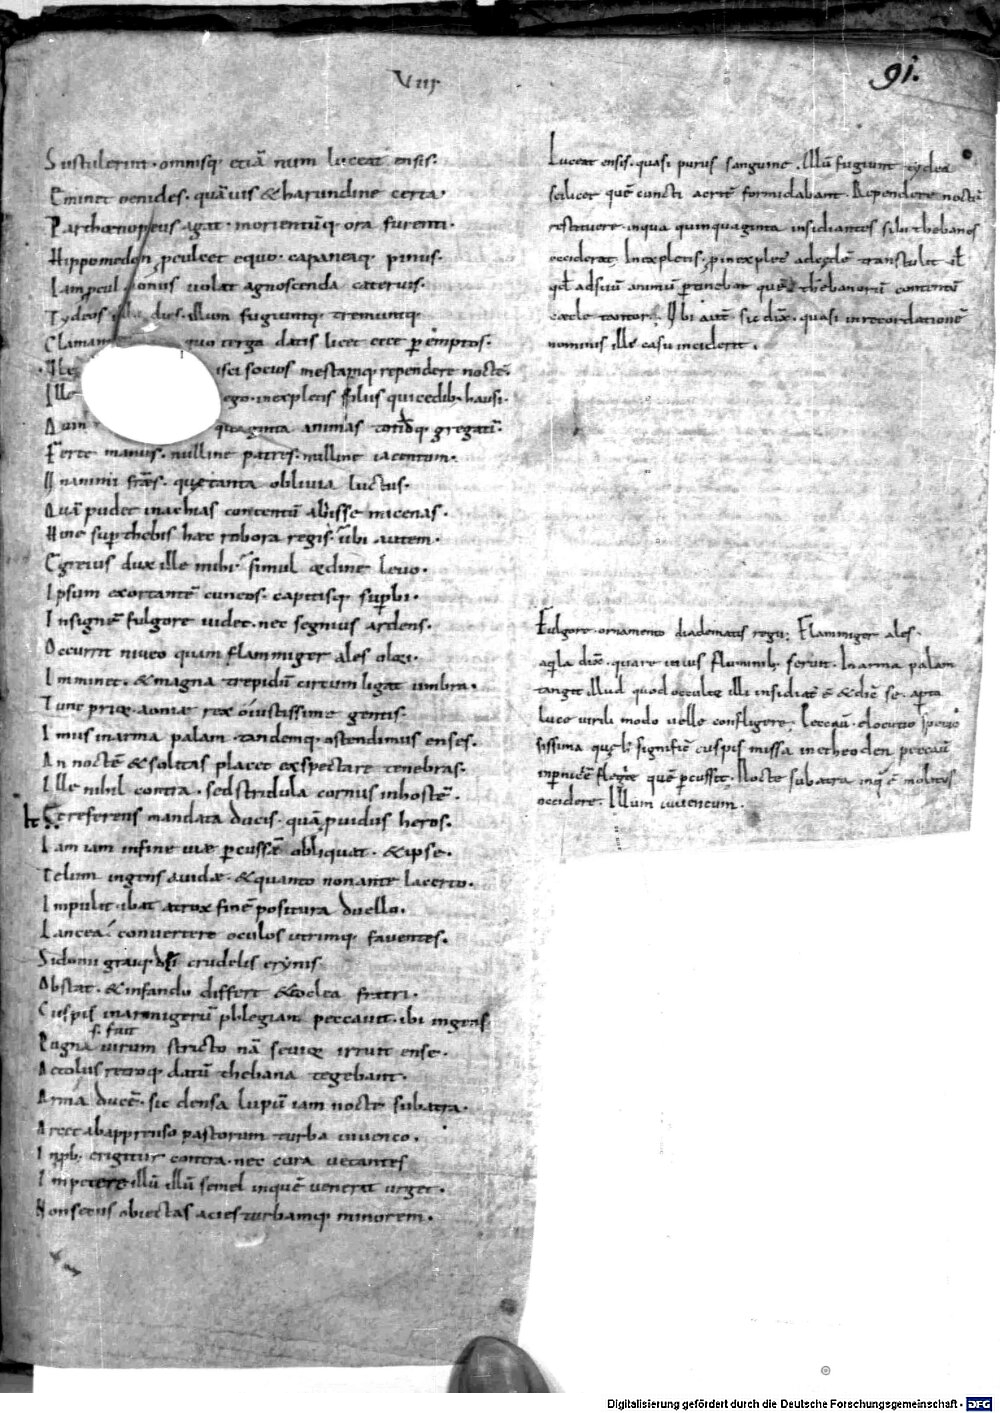 VIII
91.
Sustulerint · omnisq; etiā num luceat ensis.
Eminet oenides · quāuis & harundine certa.
Parthœnopeus agat · morientūq; ora furenti.
Hippomedon pculcet equo · capaneaq; pinus.
Iam pcul ionus uolat agnoscenda cateruis.
Tydeos dus · illum fugiuntq; tremuntq;
Claman quo terga datis licet ecce pēmptos.
isci socios mestamq; rependere nocte.
Ille ego · inexpletis solus qui cedib; hausi.
quaginta animas totidēq; gregatī.
Ferte manus · nulline patres · nulline iacentum.
Unanimi frēs · quę tanta obliuia luctus.
Quā pudet inachias contentū abisse micenas.
Hine sup thebis hæc robora regis · ubi autem.
Egreius dux ille mihi · simul ordine leuo.
Ipsum exortantē cuneos · capitisq; supbi.
Insignē fulgore uidet · nec segnius ardens.
Occurrit niueo quam flammiger ales olori.
Imminet · & magna trepidū circumligat umbra.
Tunc prior aoniæ rex o iustissime gentis.
Imus in arma palam · tandemq; ostendimus enses.
An noctē & solitas placet exspectare tenebras.
Ille nihil contra · sed stridula cornus in hostē.
It referens mandata ducis · quā puidus heros.
Iam iam in fine uiæ pcussā obliquat · & ipse.
Telum ingens auidæ · & quanto non ante lacerto.
Impulit · ibat atrox finē positura duello.
Lancea · conuertere oculos utrimq; fauentes.
Sidonii graiiq; di crudelis erynis
Obstat · & infando differt & oclea fratri.
Cuspis in armigerū phlegian peccauit · ibi ingens
s. fuit
Pugna uirum stricto nā seuior irruit ense.
Aetolus retroq; datū thebana tegebant.
Arma ducē · sic densa lupū iam nocte subatra.
Arcet ab apprenso pastorum turba iuuenco.
Inpb; erigitur contra · nec cura uetantes
Impetere illū illū semel in quē uenerat urget.
Non secus obiectas acies turbamq; minorem.
Luceat ensis · quasi purus sanguine. Illū fugiunt tydea
scilicet quē cuncti acerrē formidabant. Rependere noctē
restituere · in qua quinquaginta insidiantes sibi thebanos
occiderat. Inexpletis · p inexpletū ad cędē transtulit
qd ad suū animū ptinebat quē thebanorū contentū
cæde tantorū. Ubi autē · sic dixit · quasi in recordationē
nominis ille casu inciderit.
Fulgore · ornamento diadematis regii. Flammiger ales.
aqila dixit · quare iouis fulminib; seruit. In arma palam
tangit illud quod occulte illi insidiatū ē & dicit se · apta
luce uirili modo uelle confligere. Peccauit. elocutio speciosissima
que significē cuspis missa in etheoclen peccauit
in pniciē flegię quē pcussit. Nocte subatra inq ē molitus
occidere. Illum iuuencum.